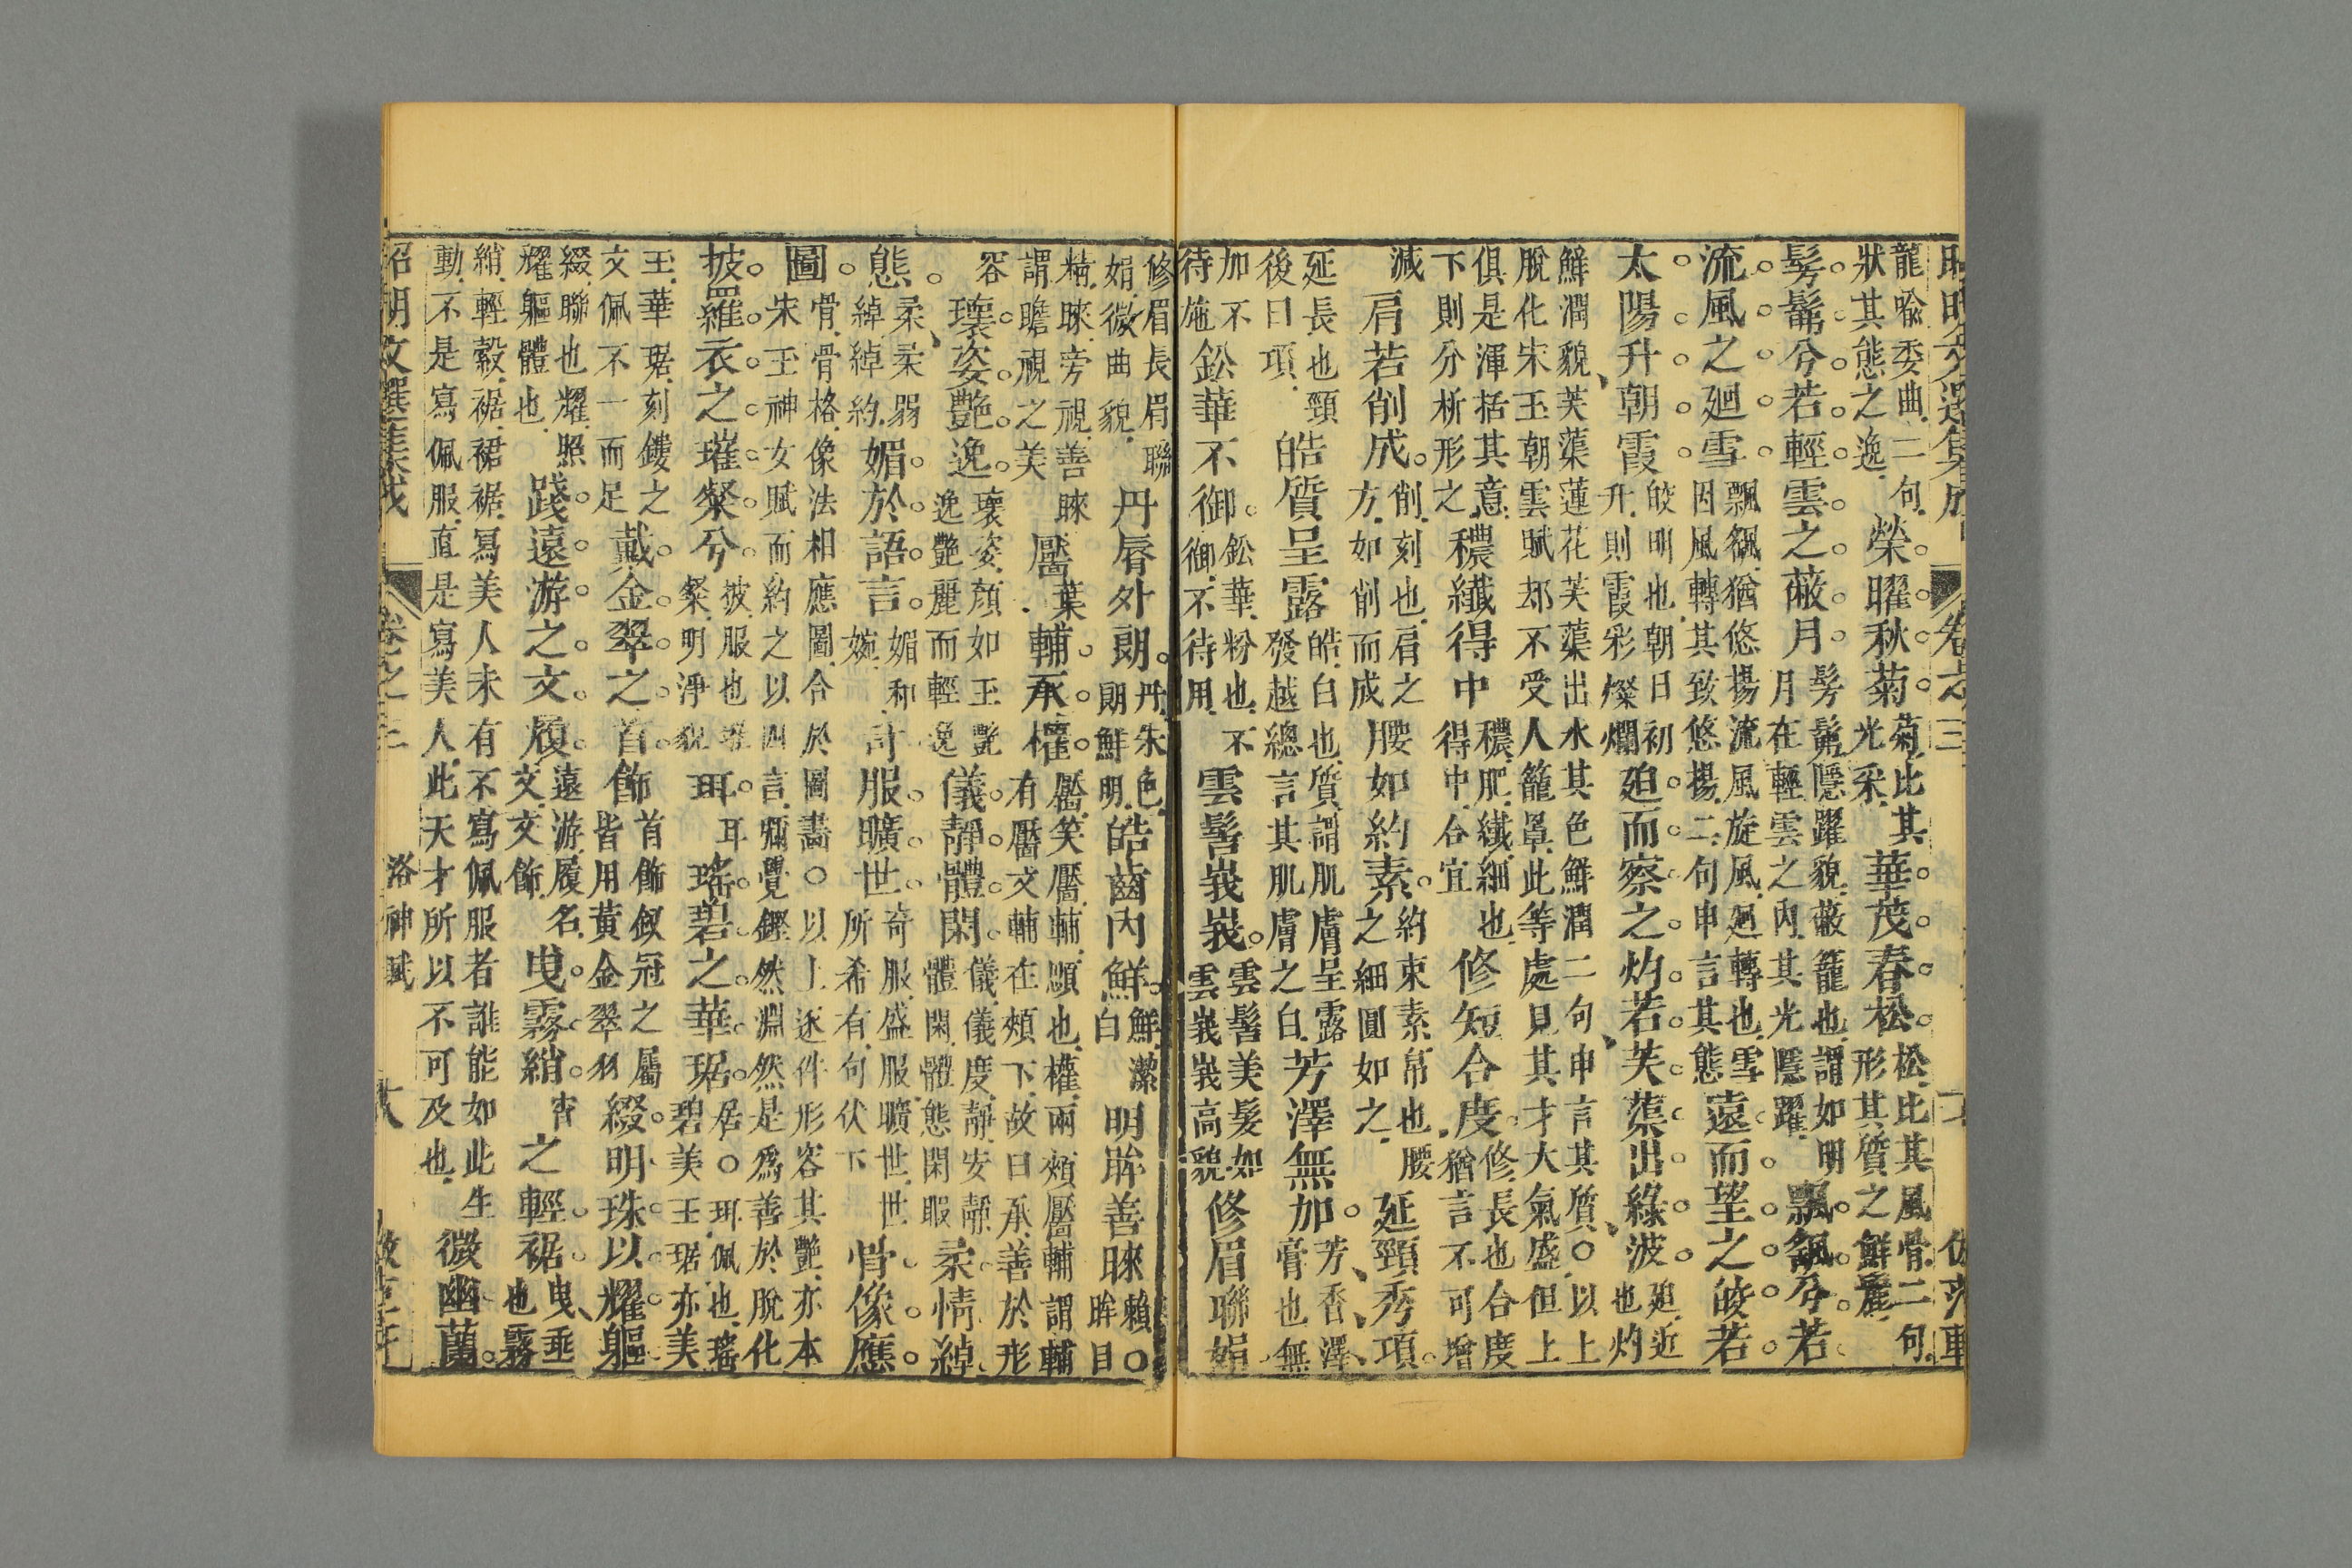 龍喻委曲二句狀其態之逸榮曜秋菊菊比其光采華茂春松松比其風骨二句形其質之鮮麗
髣髴兮若輕雲之蔽月髣髴隱躍貌蔽籠也謂如明月在輕雲之內其光隱躍飄颻兮若
流風之廻雪飄颻猶悠揚流風旋風廻轉也雪因風轉其致悠揚二句申言其態遠而望之皎若
太陽升朝霞皎明也朝日初升則霞彩燦爛廹而察之灼若芙蕖出綠波廹近也灼
鮮潤貌芙蕖蓮花芙蕖出水其色鮮潤二句申言其質○以上脫化宋玉朝雲賦却不受人籠罩此等處見其才大氣盛但上
俱是渾括其意下則分析形之穠纖得中穠肥纖細也得中合宜修短合度修長也合度猶言不可增
減肩若削成削刻也肩之方如削而成腰如約素約束素帛也腰之細圓如之延頸秀項
延長也頸後曰項皓質呈露皓白也質謂肌膚呈露發越總言其肌膚之白芳澤無加芳香澤膏也無
加不待施鉛華不御鉛華粉也不御不待用雲髻峩峩雲髻美髮如雲峩峩高貌修眉聯娟
修眉長眉聯娟微曲貌丹脣外朗丹朱色朗鮮明皓齒內鮮鮮潔白明眸善睞賴○眸目
精睞旁視善睞謂瞻視之美靨葉輔承權靨笑靨輔頤也權兩頰靨輔謂輔有靨文輔在頰下故曰承善於形
容瓌姿艷逸瓌姿顏如玉艷逸艷麗而輕逸儀靜體閑儀儀度靜安靜體閑體態閑暇柔情綽
態柔柔弱綽綽約媚於語言媚和婉奇服曠世奇服盛服曠世世所希有句伏下骨像應
圖骨骨格像法相應圖合於圖畫○以上逐件形容其艷亦本宋玉神女賦而約之以四言彌覺鏗然淵然是為善於脫化
披羅衣之璀粲兮披服也璀粲明淨貌珥耳瑤碧之華琚居○珥佩也瑤碧美玉琚亦美
玉華琚刻鏤之文佩不一而足戴金翠之首飾首飾釵冠之屬皆用黃金翠羽綴明珠以耀軀
綴聯也耀照耀軀體也踐遠游之文履遠游履名文文飾曳霧綃宵之輕裾曳垂也霧
綃輕縠裾裙裾寫美人未有不寫佩服者誰能如此生動不是寫佩服直是寫美人此天才所以不可及也微幽蘭
昭明文選集成 卷之三 洛神賦